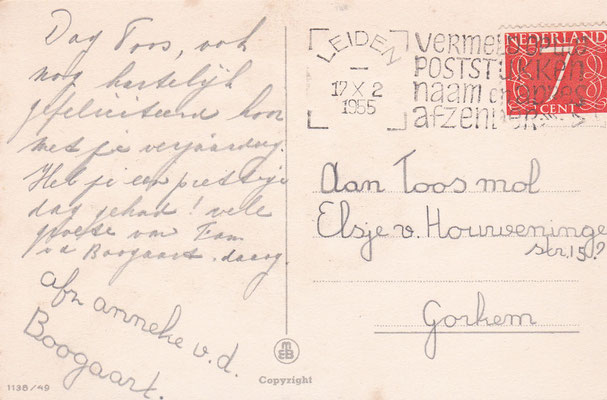 Dag Toos, ook
nog hartelijk
gefeliciteerd hoor
met je verjaardag.
Heb je een prettige
dag gehad! vele
groete van Fam
v.d. Boogaart. daag.
afz anneke v.d.
Boogaart.
1138/49
LEIDEN
17 X 2
1955
vermeld op uw
POSTSTUKKEN
naam en adres
afzender
NEDERLAND
7
CENT
Aan Toos mol
Elsje v. Houweninge
str. 15.?
Gorkem
Copyright